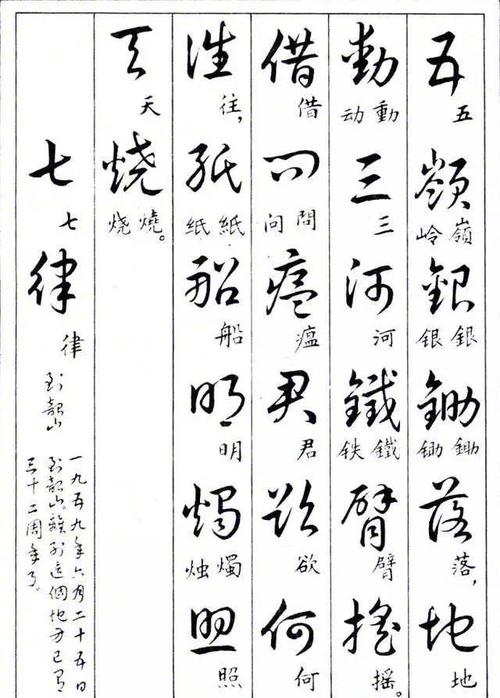 五嶺銀鋤落地
五 嶺岭 銀银 鋤锄 落， 地
動三河鐵臂摇
動动 三 河 鐵铁 臂 摇。
借問瘟君欲何
借 問问 瘟 君 欲 何
往紙船明燭照
往， 紙纸 船 明 燭烛 照
天燒
天 燒烧。
七律
七 律
到韶山
一九五九年六月二十五日
到韶山。離别這個地方已有
三十二周年了。